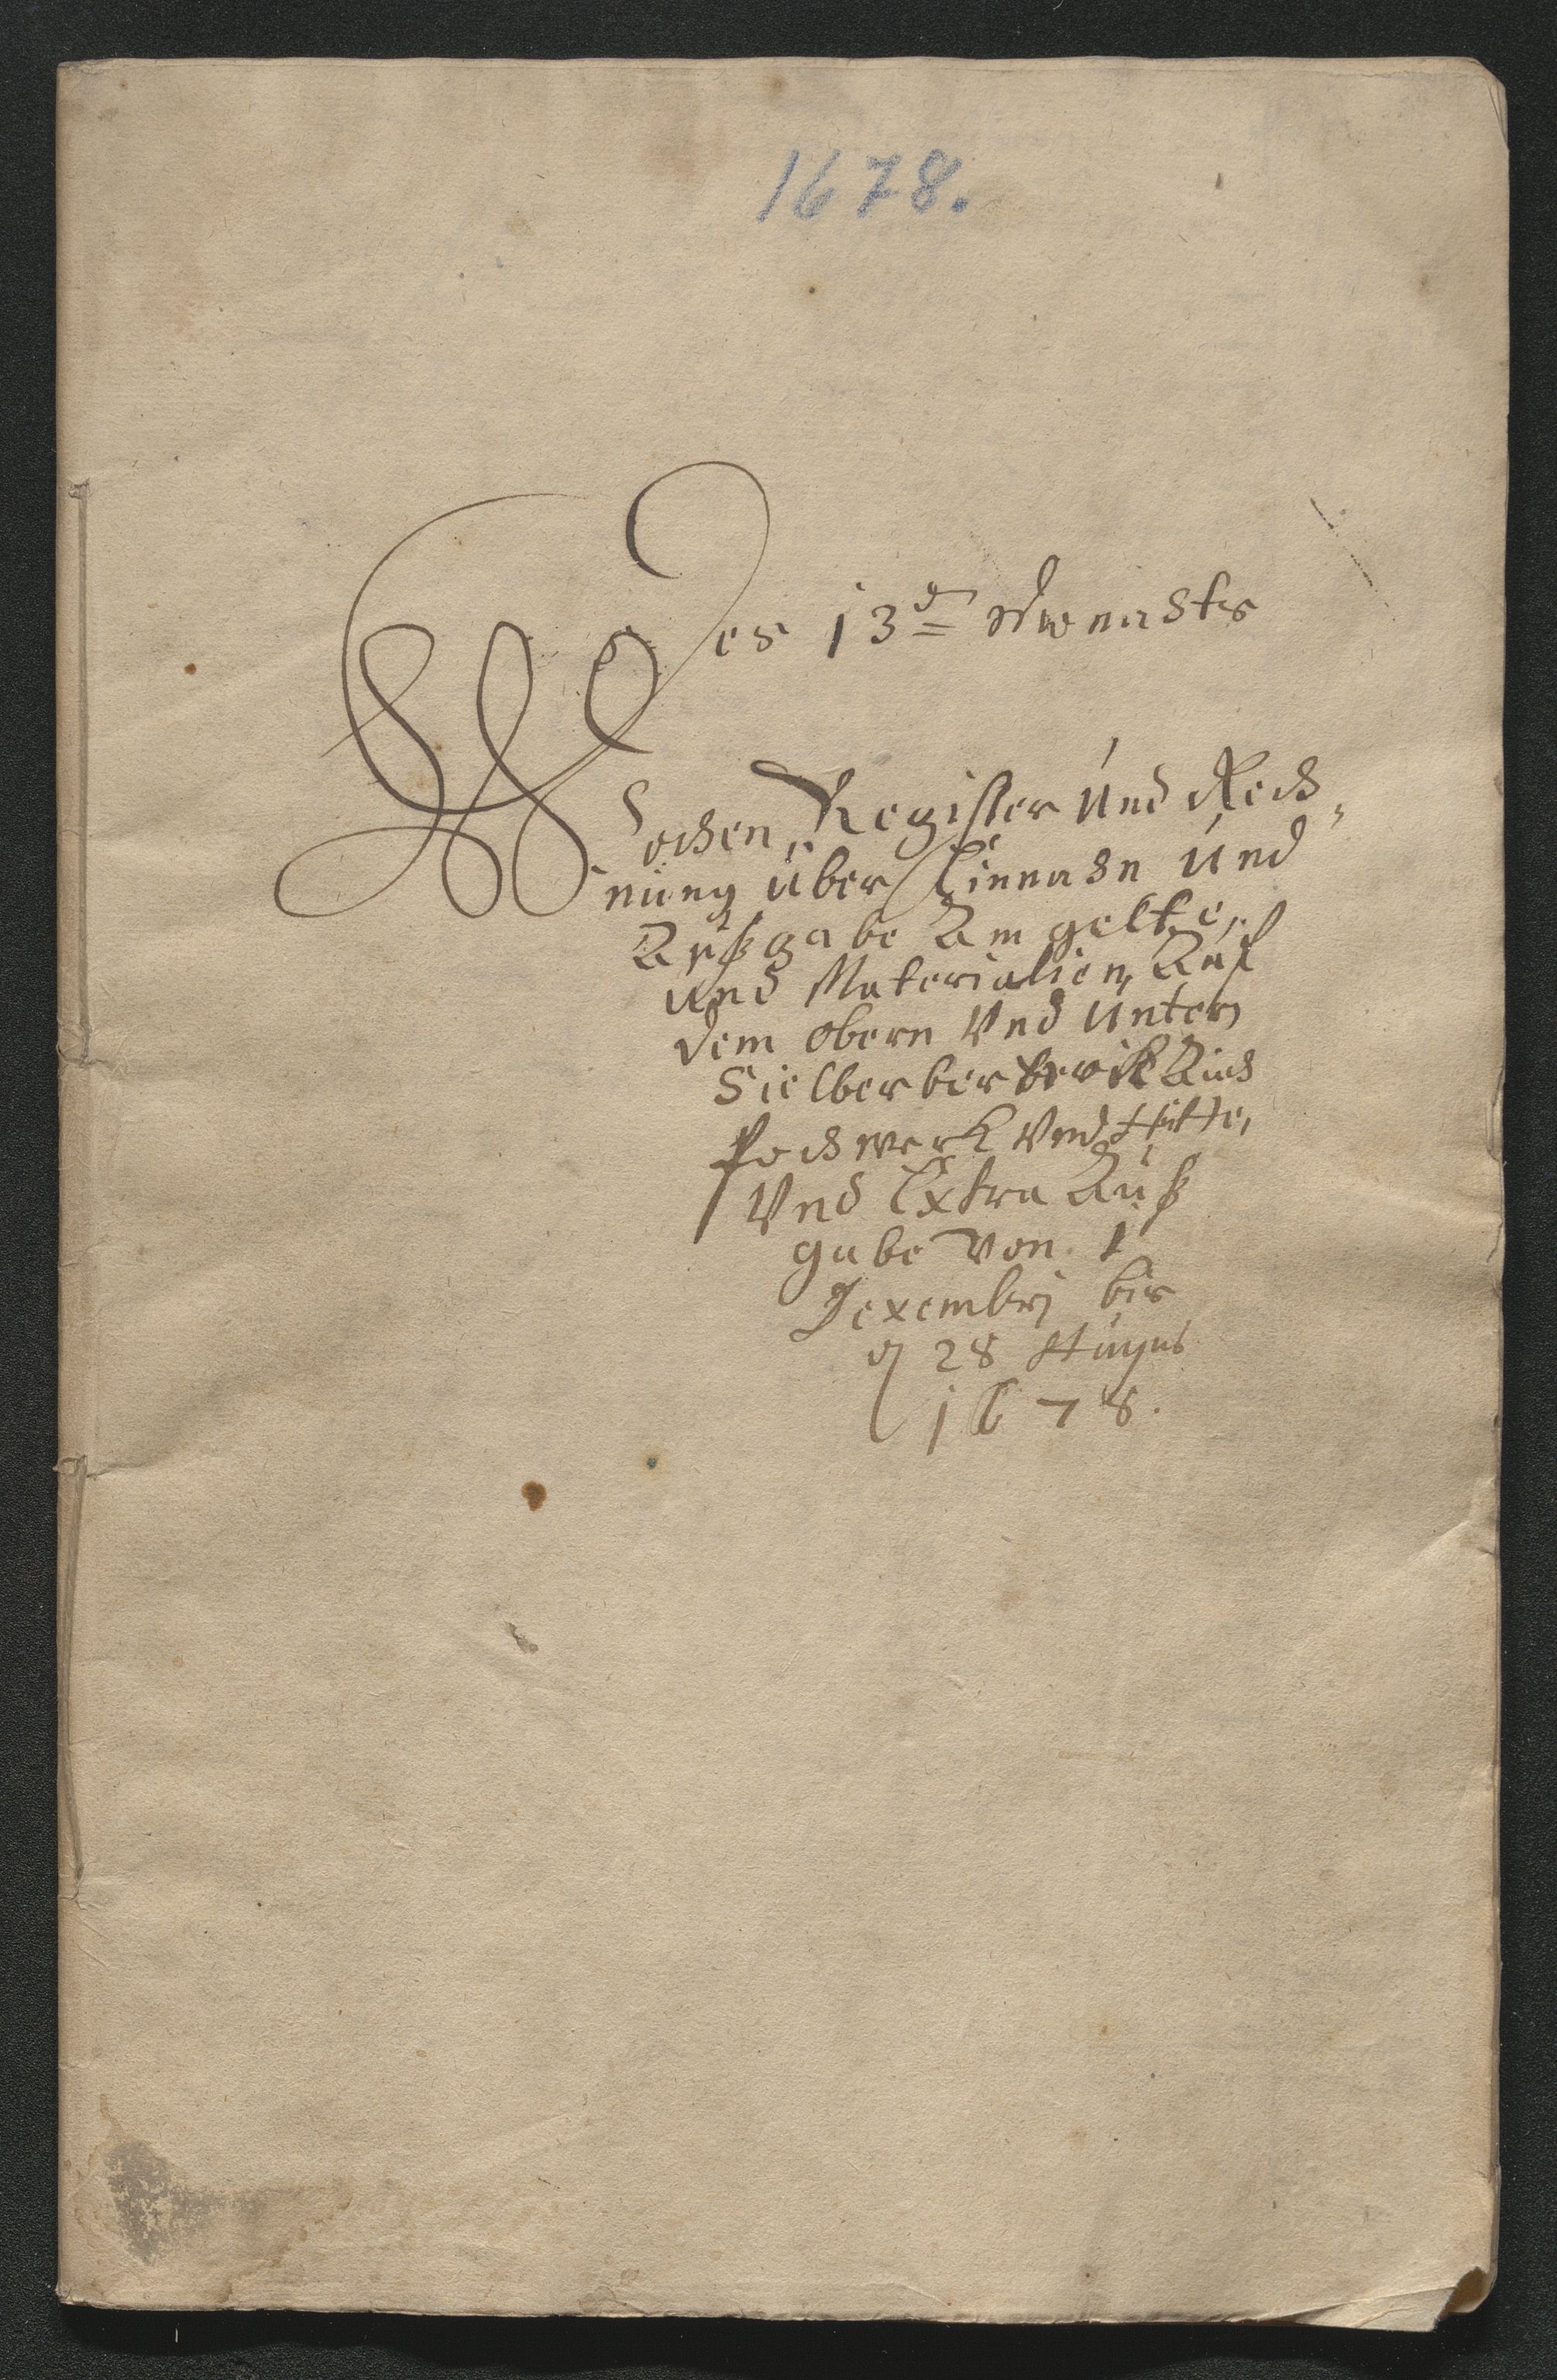 1678.
Des 13den Monahts
Wochen Register Und Rech,
nung uber Einnahm Und
Außgabe Am gelte,
und Materialien, Auf
dem obern Und Untern
Sielberberkwerk Auch
Pochwerk Und Hütte,
Und Extra Auß
gabe von 1
Dexembrj bis
d 28 Huyus
1678.